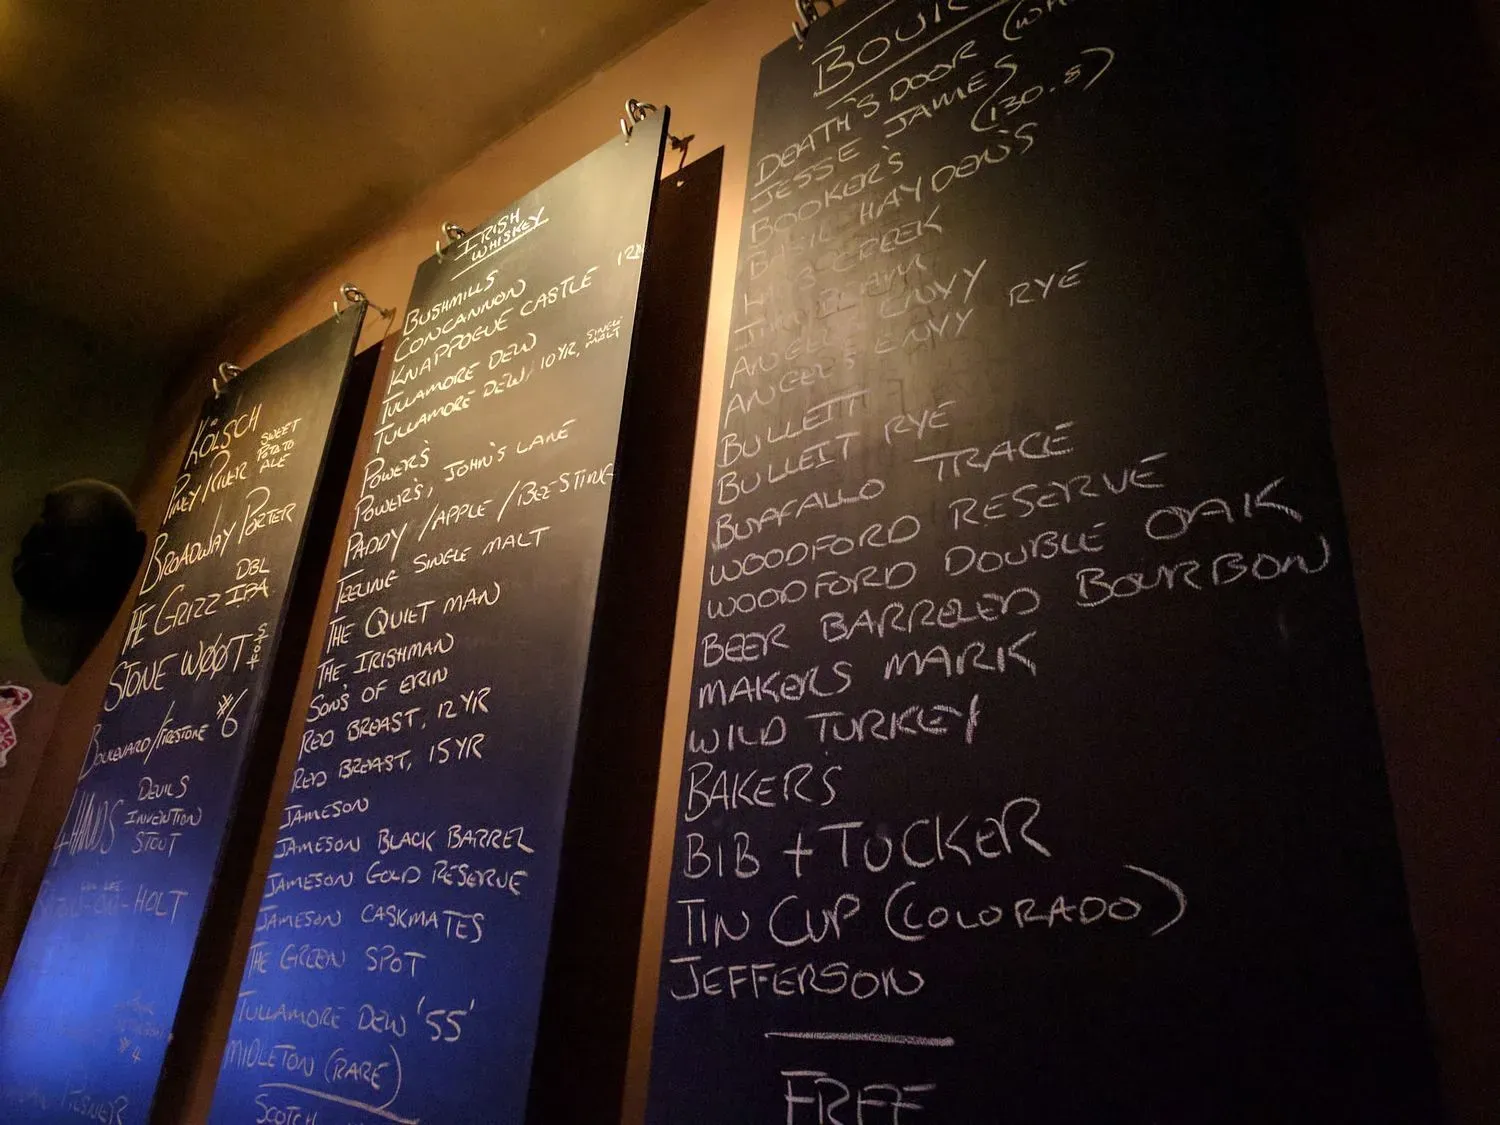 KÖLSCH
PINEY/RIVER SWEET POTATO ALE
BROADWAY PORTER
THE GRIZZ DBL IPA
STONE WØØTSTOUT
BOULEVARD/FIRESTONE #6
4 HANDS DEVILS INVENTION STOUT
HOLT
#4
IRISH
WHISKEY
BUSHMILLS
CONCANNON
KNAPPOGUE CASTLE
TULLAMORE DEW
TULLAMORE DEW, 10YR, SINGLE MALT
POWER'S
POWER'S, JOHN'S LANE
PADDY /APPLE /BEE-STING
TEELING SINGLE MALT
THE QUIET MAN
THE IRISHMAN
SONS OF ERIN
RED BREAST, 12YR
RED BREAST, 15YR
JAMESON
JAMESON BLACK BARREL
JAMESON GOLD RESERVE
JAMESON CASKMATES
THE GREEN SPOT
TULLAMORE DEW '55'
MIDLETON (RARE)
SCOTCH
DEATH'S DOOR
JESSE JAMES
BOOKER'S (130.8)
BASIL HAYDEN'S
CREEK
JIM BEAM
ANGEL'S ENVY
ANGEL'S ENVY RYE
BULLEIT
BULLEIT RYE
BUFFALLO TRACE
WOODFORD RESERVE
WOODFORD DOUBLE OAK
BEER BARRELED BOURBON
MAKERS MARK
WILD TURKEY
BAKERS
BIB + TUCKER
TIN CUP (COLORADO)
JEFFERSON
FREE